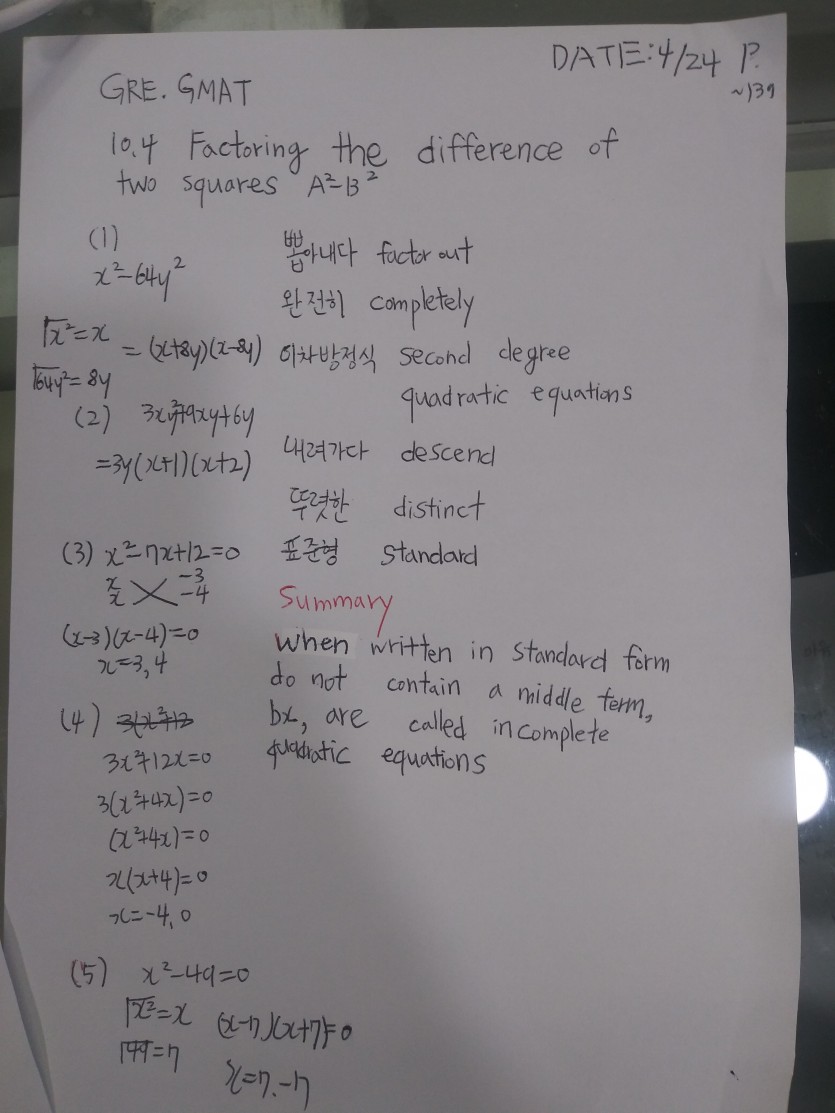 DATE: 4/24 P.
~139
GRE. GMAT
10.4 Factoring the difference of
two squares A²-B²
(1)
x²-64y²
√x²=x
√64y²=8y
=(x+8y)(x-8y)
(2) 3x²y+9xy+6y
=3y(x+1)(x+2)
(3) x²-7x+12=0
x -3
x -4
(x-3)(x-4)=0
x=3,4
(4) 3(x²+12
3x²+12x=0
3(x²+4x)=0
(x²+4x)=0
x(x+4)=0
x=-4,0
(5) x²-49=0
√x²=x
√49=7
(x-7)(x+7)=0
x=7.-7
뽑아내다 factor out
완전히 completely
이차방정식 second degree
quadratic equations
내려가다 descend
뚜렷한 distinct
표준형 standard
Summary
When written in standard form
do not contain a middle term,
bx, are called incomplete
quadratic equations